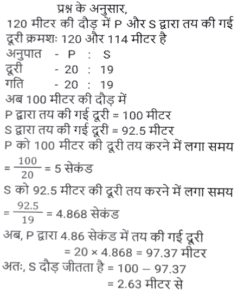 प्रश्न के अनुसार,
120 मीटर की दौड़ में P और S द्वारा तय की गई
दूरी क्रमशः 120 और 114 मीटर है
अनुपात - P : S
दूरी - 20 : 19
गति - 20 : 19
अब 100 मीटर की दौड़ में
P द्वारा तय की गई दूरी = 100 मीटर
S द्वारा तय की गई दूरी = 92.5 मीटर
P को 100 मीटर की दूरी तय करने में लगा समय
= 100/20 = 5 सेकंड
S को 92.5 मीटर की दूरी तय करने में लगा समय
= 92.5/19 = 4.868 सेकंड
अब, P द्वारा 4.86 सेकंड में तय की गई दूरी
= 20 × 4.868 = 97.37 मीटर
अतः, S दौड़ जीतता है = 100 − 97.37
= 2.63 मीटर से